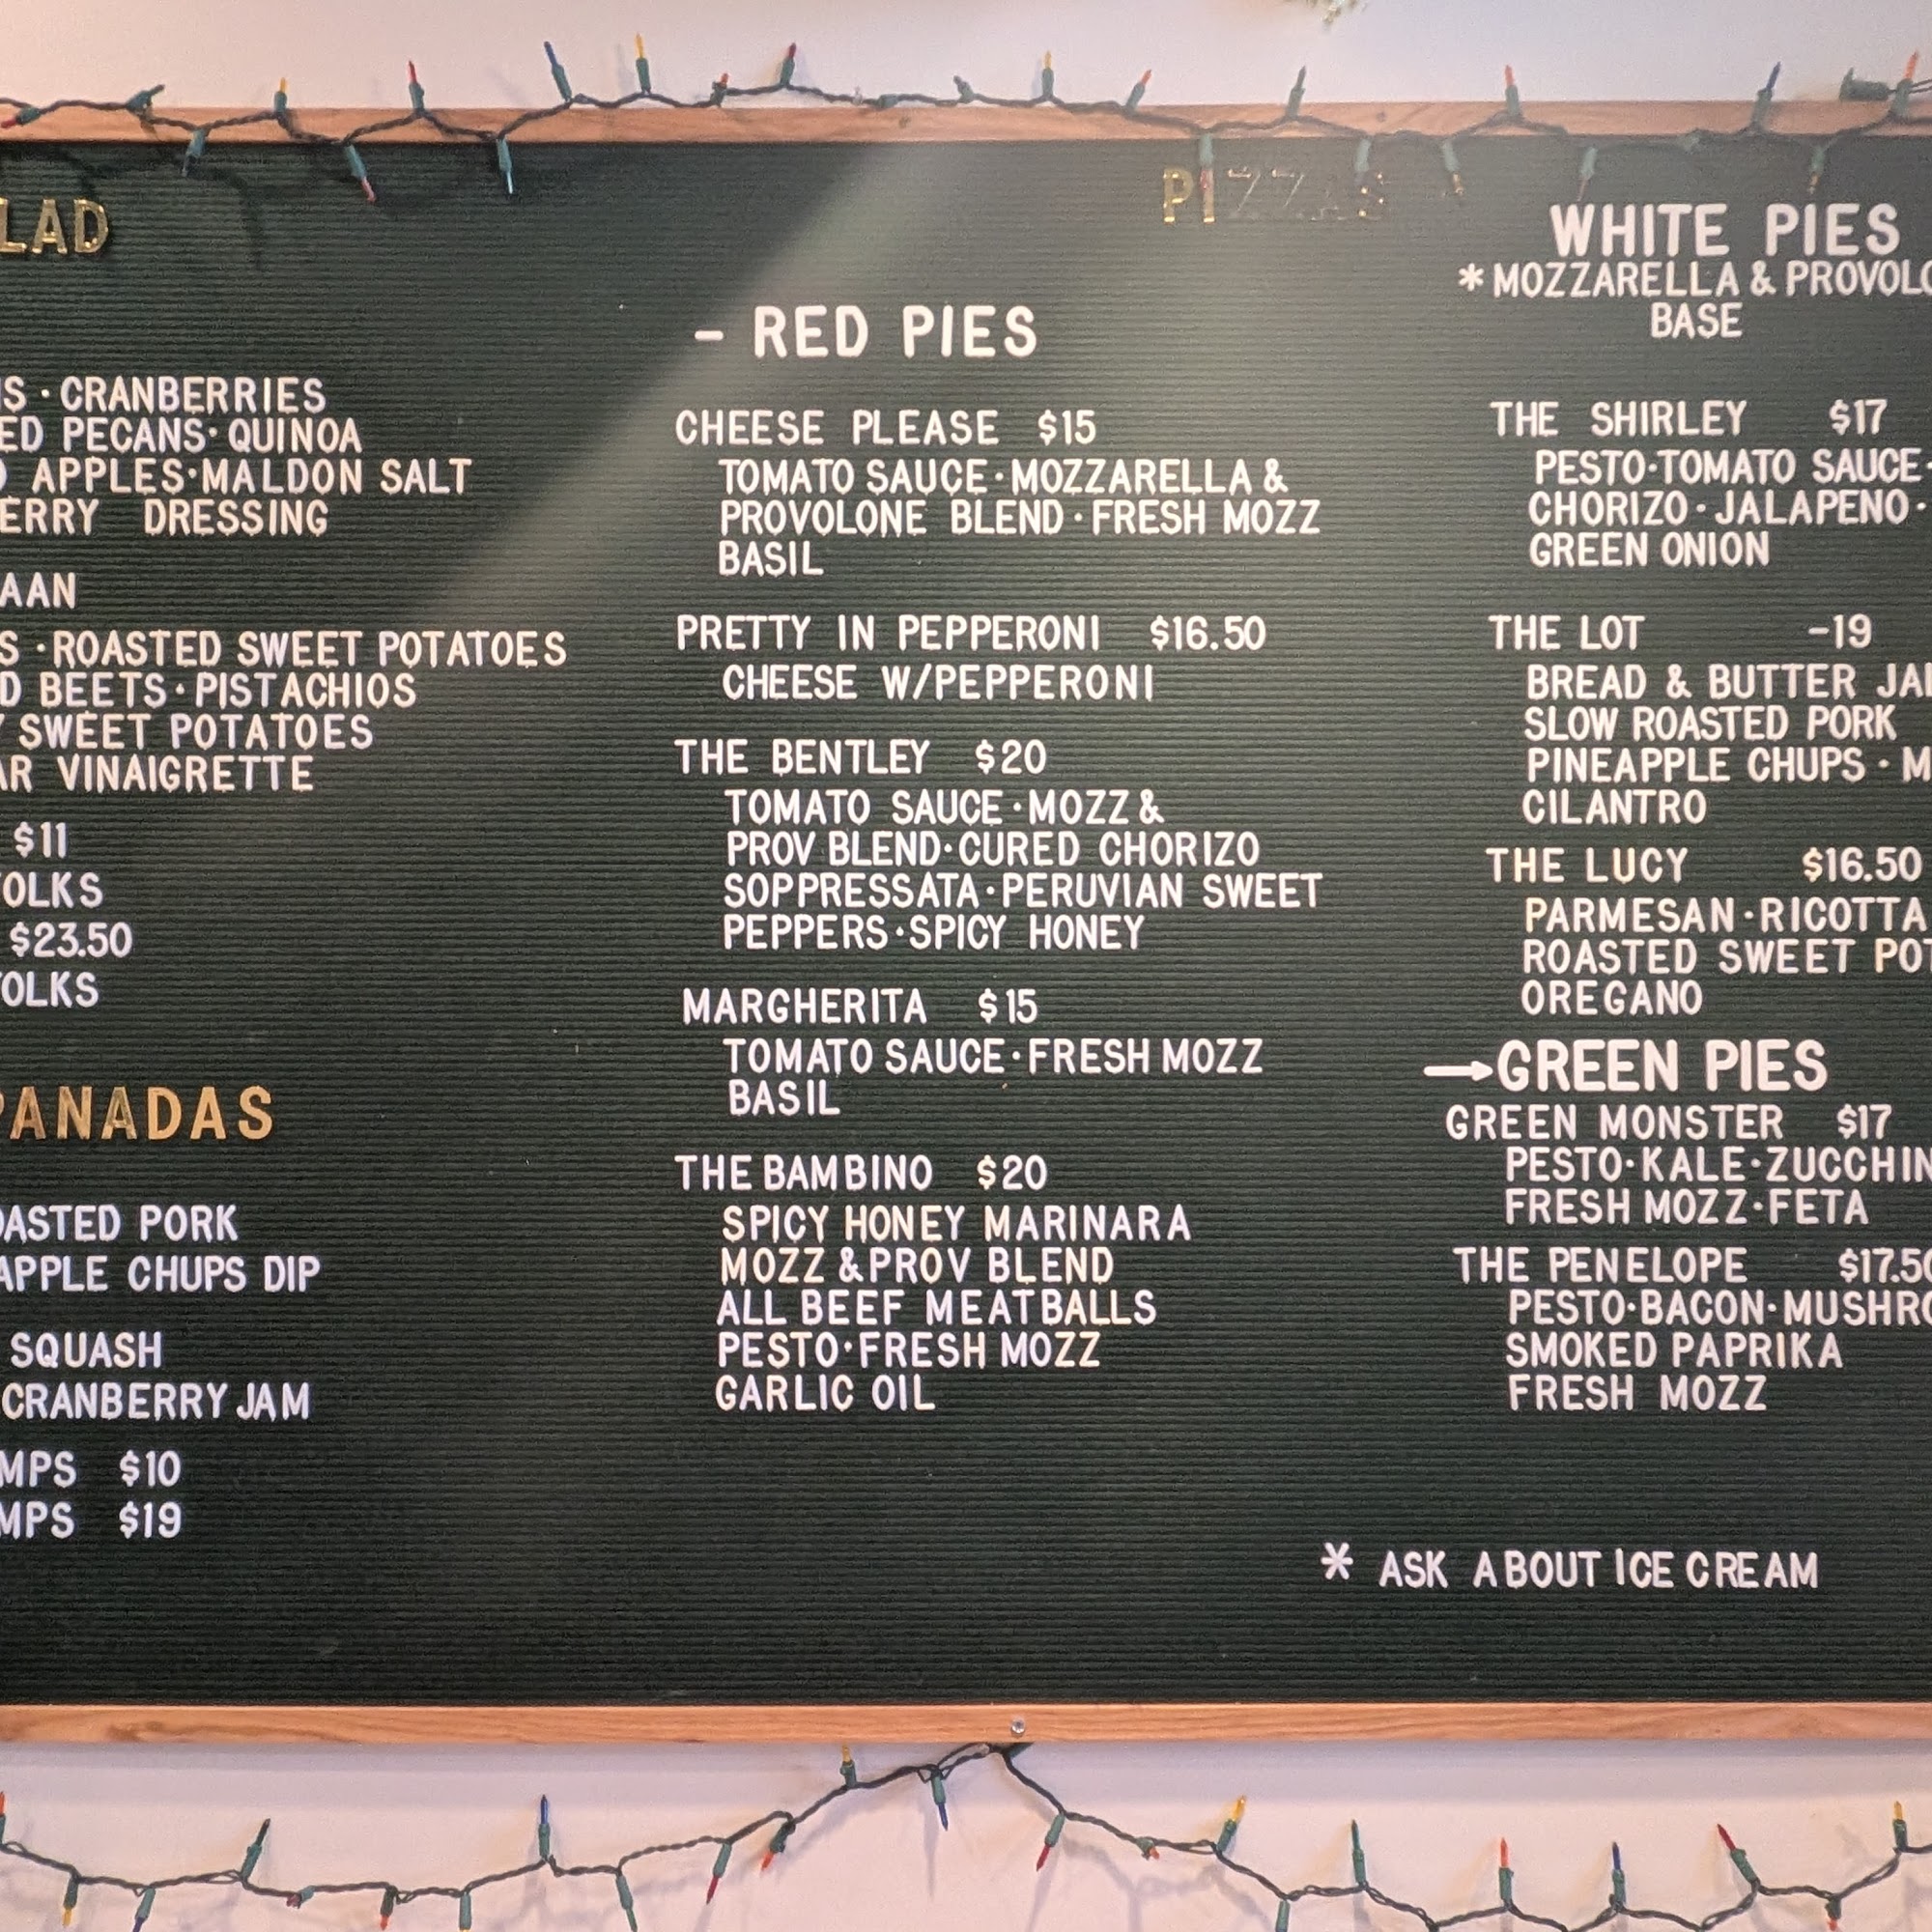 LAD
S · CRANBERRIES
ED PECANS · QUINOA
APPLES · MALDON SALT
ERRY DRESSING
AAN
S · ROASTED SWEET POTATOES
D BEETS · PISTACHIOS
SWEET POTATOES
AR VINAIGRETTE
$11
OLKS
$23.50
OLKS
PANADAS
OASTED PORK
APPLE CHUPS DIP
SQUASH
CRANBERRY JAM
MPS $10
MPS $19
PIZZAS
- RED PIES
CHEESE PLEASE $15
TOMATO SAUCE · MOZZARELLA &
PROVOLONE BLEND · FRESH MOZZ
BASIL
PRETTY IN PEPPERONI $16.50
CHEESE W/PEPPERONI
THE BENTLEY $20
TOMATO SAUCE · MOZZ &
PROV BLEND · CURED CHORIZO
SOPPRESSATA · PERUVIAN SWEET
PEPPERS · SPICY HONEY
MARGHERITA $15
TOMATO SAUCE · FRESH MOZZ
BASIL
THE BAMBINO $20
SPICY HONEY MARINARA
MOZZ & PROV BLEND
ALL BEEF MEATBALLS
PESTO · FRESH MOZZ
GARLIC OIL
WHITE PIES
* MOZZARELLA & PROVOLO
BASE
THE SHIRLEY $17
PESTO · TOMATO SAUCE ·
CHORIZO · JALAPENO ·
GREEN ONION
THE LOT -19
BREAD & BUTTER JA
SLOW ROASTED PORK
PINEAPPLE CHUPS · M
CILANTRO
THE LUCY $16.50
PARMESAN · RICOTTA
ROASTED SWEET POT
OREGANO
→ GREEN PIES
GREEN MONSTER $17
PESTO · KALE · ZUCCHIN
FRESH MOZZ · FETA
THE PENELOPE $17.50
PESTO · BACON · MUSHRO
SMOKED PAPRIKA
FRESH MOZZ
* ASK ABOUT ICE CREAM